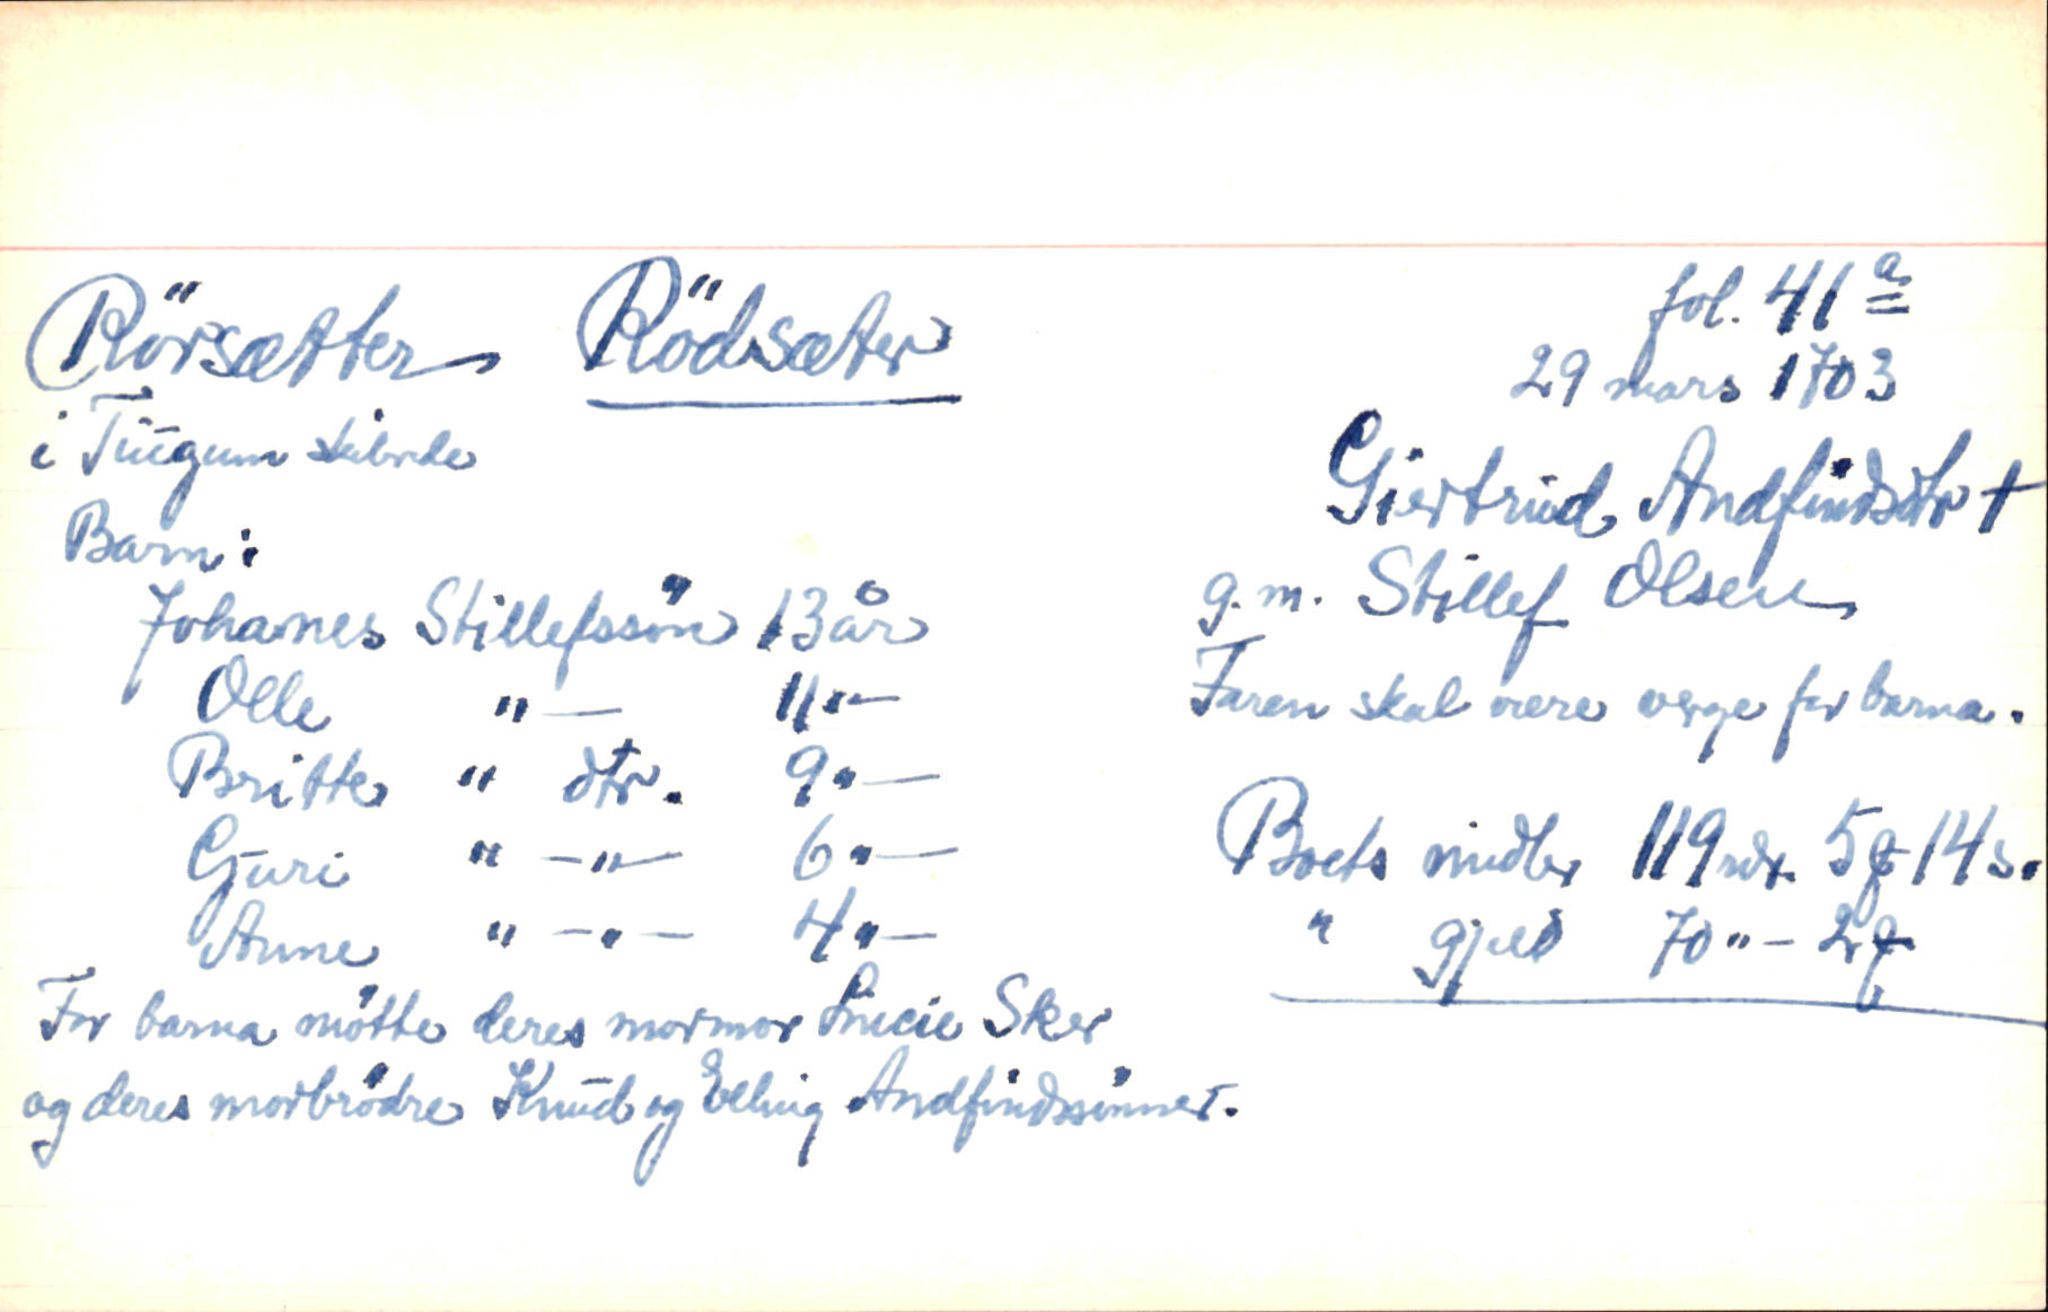 Rörsætter Rödsæter
i Tüügum skibrede
Barn:
Johanes Stillefssön 13 år
Olle " — 11 " —
Britte " dtr. 9 " —
Gjuri " — " — 6 " —
Anne " — " — 4 " —
For barna mötte deres mormor Lucie Sker
og deres morbrödre Knud og Elling Andfindssönner.
fol. 41 a
29 mars 1703
Giertrud Andfindsdtr †
g.m. Stillef Olsen
Faren skal være verge for barna.
Boets midler 119 rdr. 5 ƒ 14 s.
" gjeld 70 " — 2 ƒ